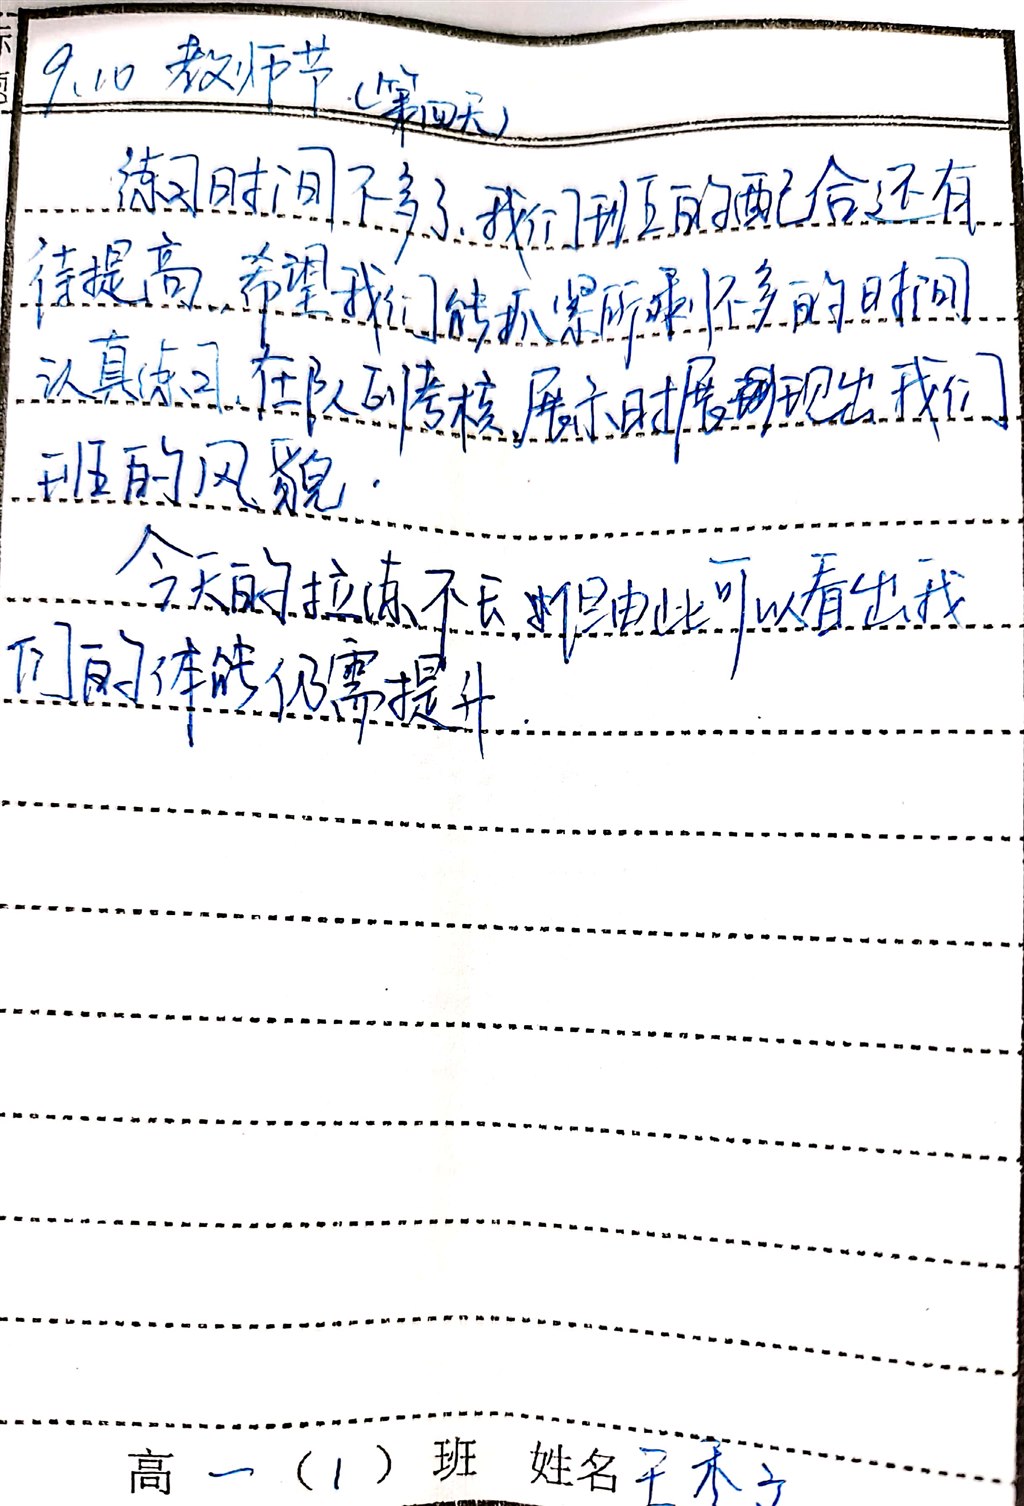 标题
9.10 教师节.(第四天)
练习时间不多了,我们班的配合还有
待提高,希望我们能抓紧所剩不多的时间
认真练习,在队列考核,展示时展现出我们
班的风貌.
今天的拉练不长,但由此可以看出,我
们的体能仍需提升.
高一(1)班 姓名 王